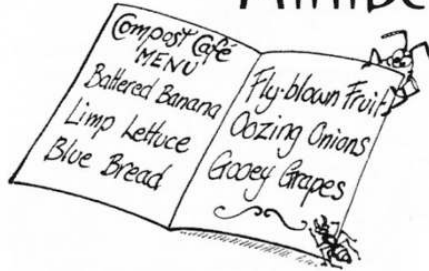 Compost Café
MENU
Battered Banana
Limp Lettuce
Blue Bread
Fly-blown Fruit
Oozing Onions
Gooey Grapes